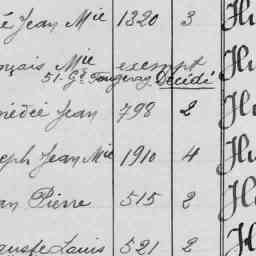 é Jean Mie 1320 3 Hu
nçais Mie exempt Hu
51. Gd Fougeray Décidé
nédié Jean 798 2 Hu
eph Jean Mie 1910 4 Hu
an Pierre 515 2 Hu
Louis 521 2 Hu